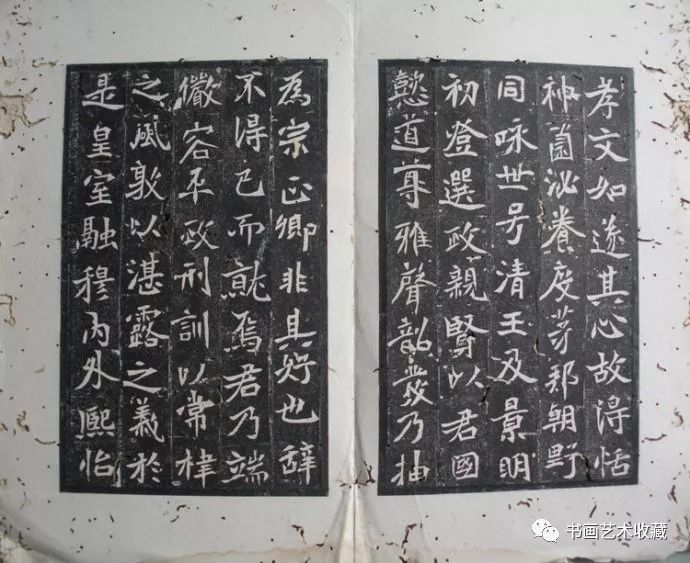 孝文如遂其心故得恬
神薗泌養度茅邦朝野
同咏世号清王及景明
初登選政親賢以君國
懿道尊雅聲韶發乃抽
為宗正卿非其好也辭
不得已而就焉君乃端
徽容平政刑訓以常棣
之風敦以湛露之義於
是皇室融穆內外熙怡
书画艺术收藏